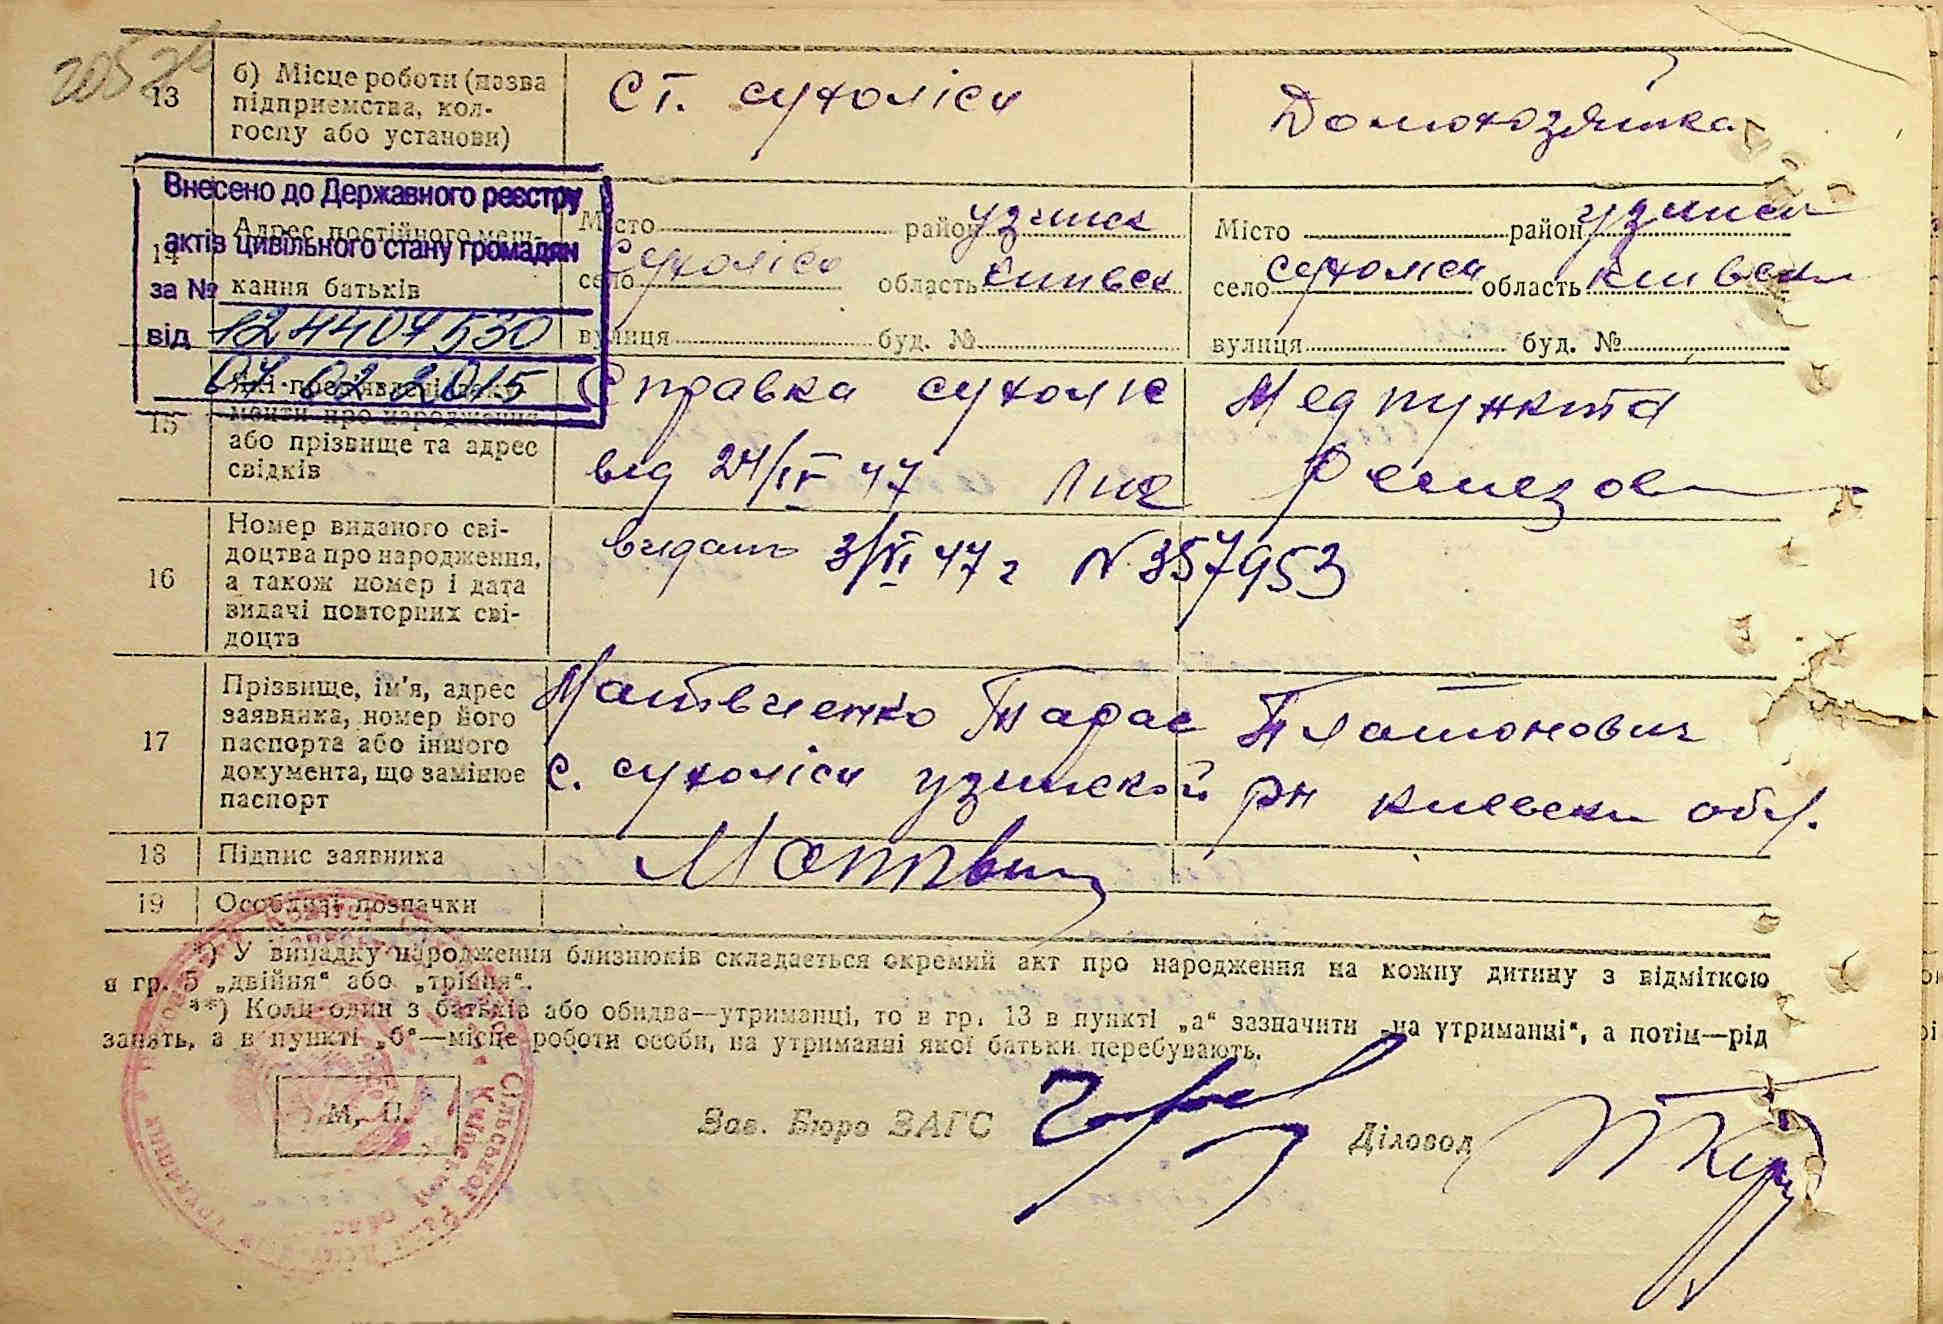 13
б) Місце роботи (назва
підприємства, кол-
госпу або установи)
Ст. сухоліси
Домохозяйка
Внесено до Державного реєстру
актів цивільного стану громадян
за №
від 124407530
07 02 2015
14
Адрес постійного меш-
кання батьків
Місто район узинск
село Сухоліси область Киивск
вулиця буд. №
Місто район узинск
село Сухоліси область Киивски
вулиця буд. №
15
або прізвище та адрес
свідків
Справка сухоліс Медпункта
від 24/IV 47
16
Номер виданого сві-
доцтва про народження,
а також номер і дата
видачі повторних сві-
доцтв
видано 3/VI 47 г N 357953
17
Прізвище, ім'я, адрес
заявника, номер його
паспорта або іншого
документа, що замінює
паспорт
Матвиенко Тарас Платонович
с. сухоліси узинской рн киевски обл.
18
Підпис заявника
19
Особливі позначки
*) У випадку народження близнюків складається окремий акт про народження на кожну дитину з відміткою
в гр. 5 „двійня“ або „трійня“.
**) Коли один з батьків або обидва—утриманці, то в гр. 13 в пункті „а“ зазначити „на утриманні“, а потім—рід
занять, а в пункті „б“—місце роботи особи, на утриманні якої батьки перебувають.
М. П.
Зав. Бюро ЗАГС
Діловод